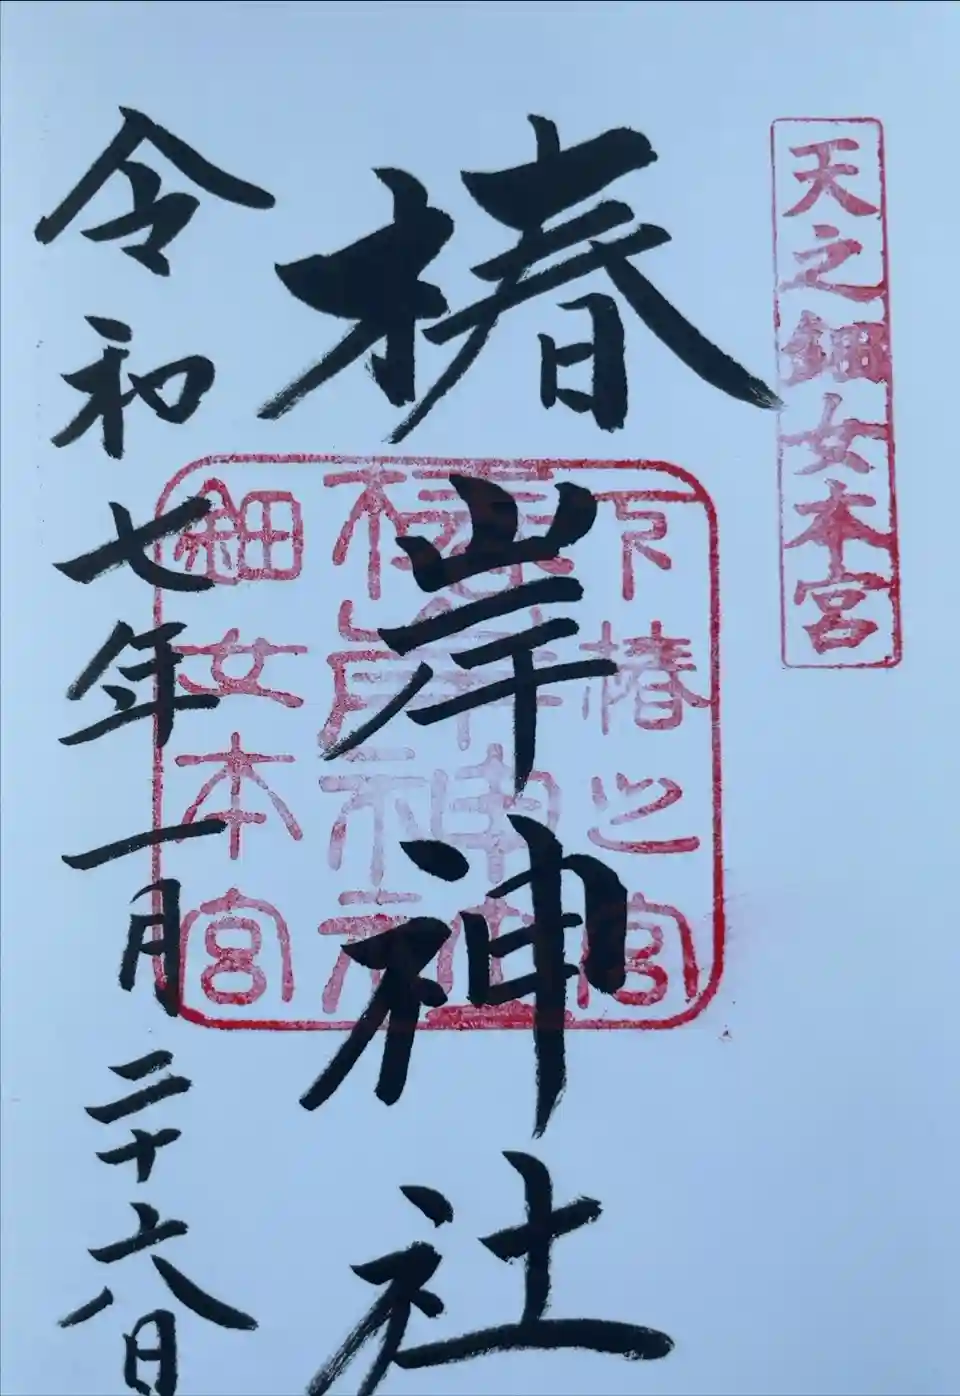 天之鈿女本宮
椿岸神社
下椿之宮
椿岸神社
鈿女本宮
令和七年一月二十六日